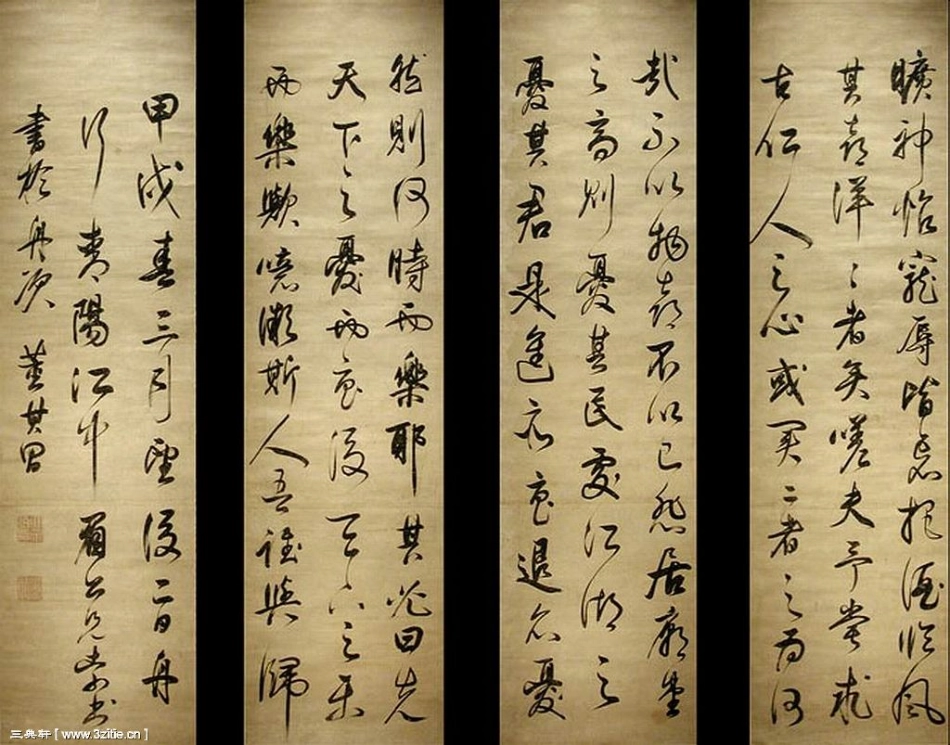 曠神怡寵辱皆忘把酒臨風
其喜洋〻者矣嗟夫予嘗求
古仁人之心或異二者之為何
哉不以物喜不以己悲居廟堂
之高則憂其民處江湖之
憂其君是進亦憂退亦憂
然則何時而樂耶其必曰先
天下之憂而憂後天下之樂
而樂歟噫微斯人吾誰與歸
甲戌春三月望後二日舟
行陽江中眉公兄
書於舟次董其昌
三典轩【www.3zitie.cn】